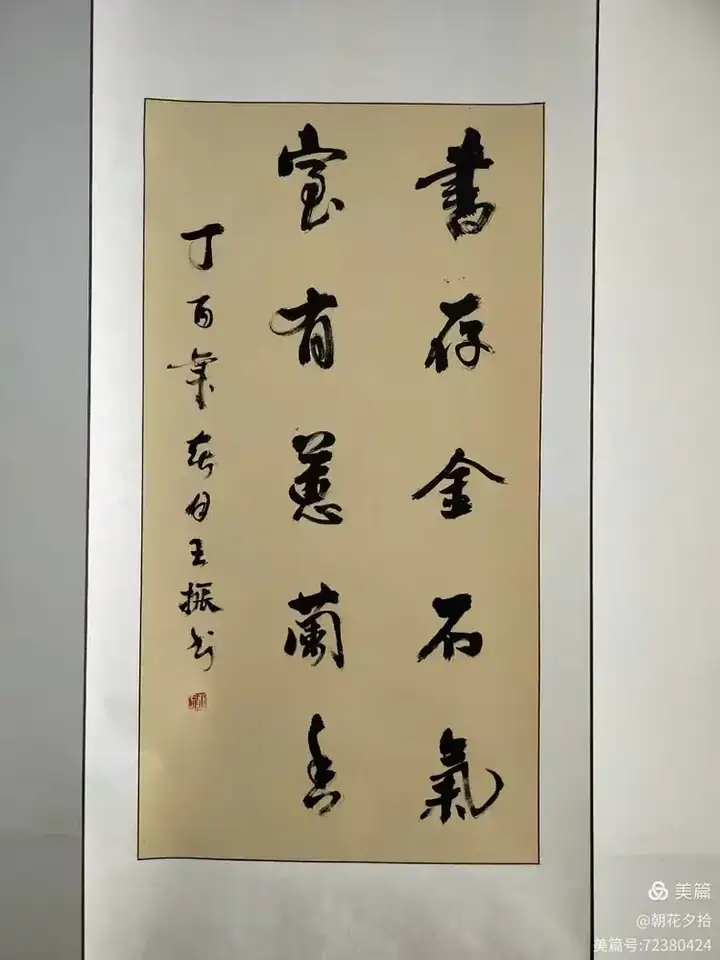 書存金石氣
室有蕙蘭香
丁酉年春月王振书
美篇
@朝花夕拾
美篇号:72380424